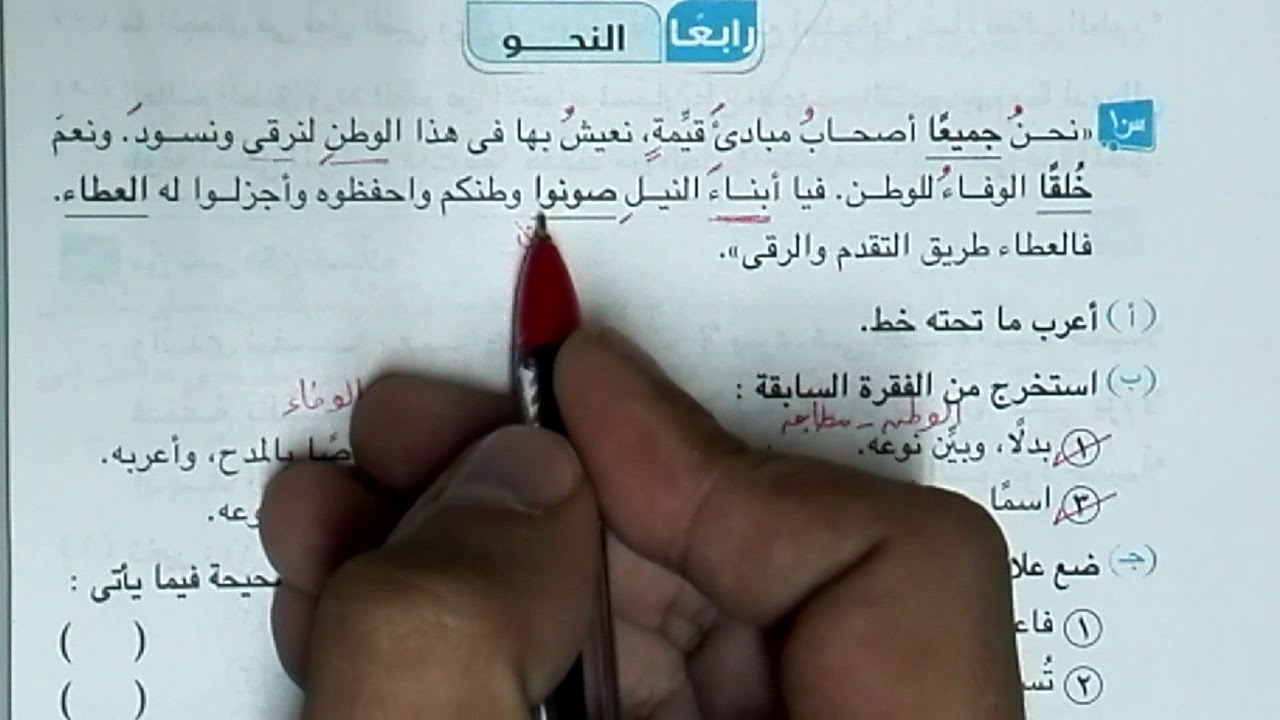 رابعًا النحـــو
س١ «نحـنُ جميعًا أصحـابُ مبادئَ قيِّمةٍ، نعيشُ بها فى هذا الوطنِ لنرقى ونسـودَ. ونعمَ
خُلقًا الوفاءُ للوطـن. فيا أبنـاءَ النيـلِ صونوا وطنكم واحفظوه وأجزلـوا له العطاء.
فالعطاء طريق التقدم والرقى».
(أ) أعرب ما تحته خط.
(ب) استخرج من الفقرة السابقة :
الوطن - مطابق الوفاء
١ بدلًا، وبيِّن نوعه. صًا بالمدح، وأعربه.
٣ اسمًا وعه.
(جـ) ضع علا حيحة فيما يأتى :
١ فاعـ ( )
٢ تُسـ ( )